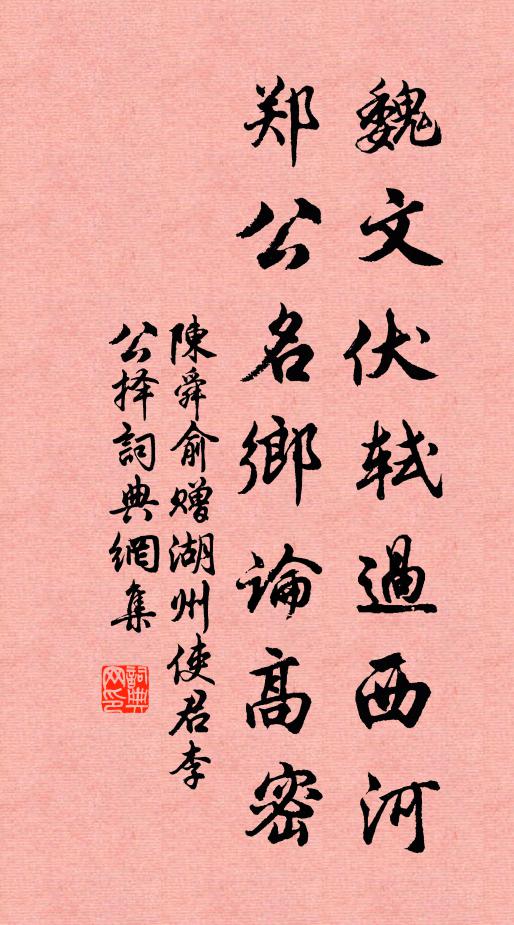 魏文伏轼過西河
郑公名鄉論高密
陳舜俞赠湖州使君李
公择詞典網集
詞典网印